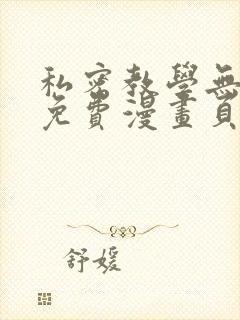 私密教學無
免費漫畫頁
舒媛